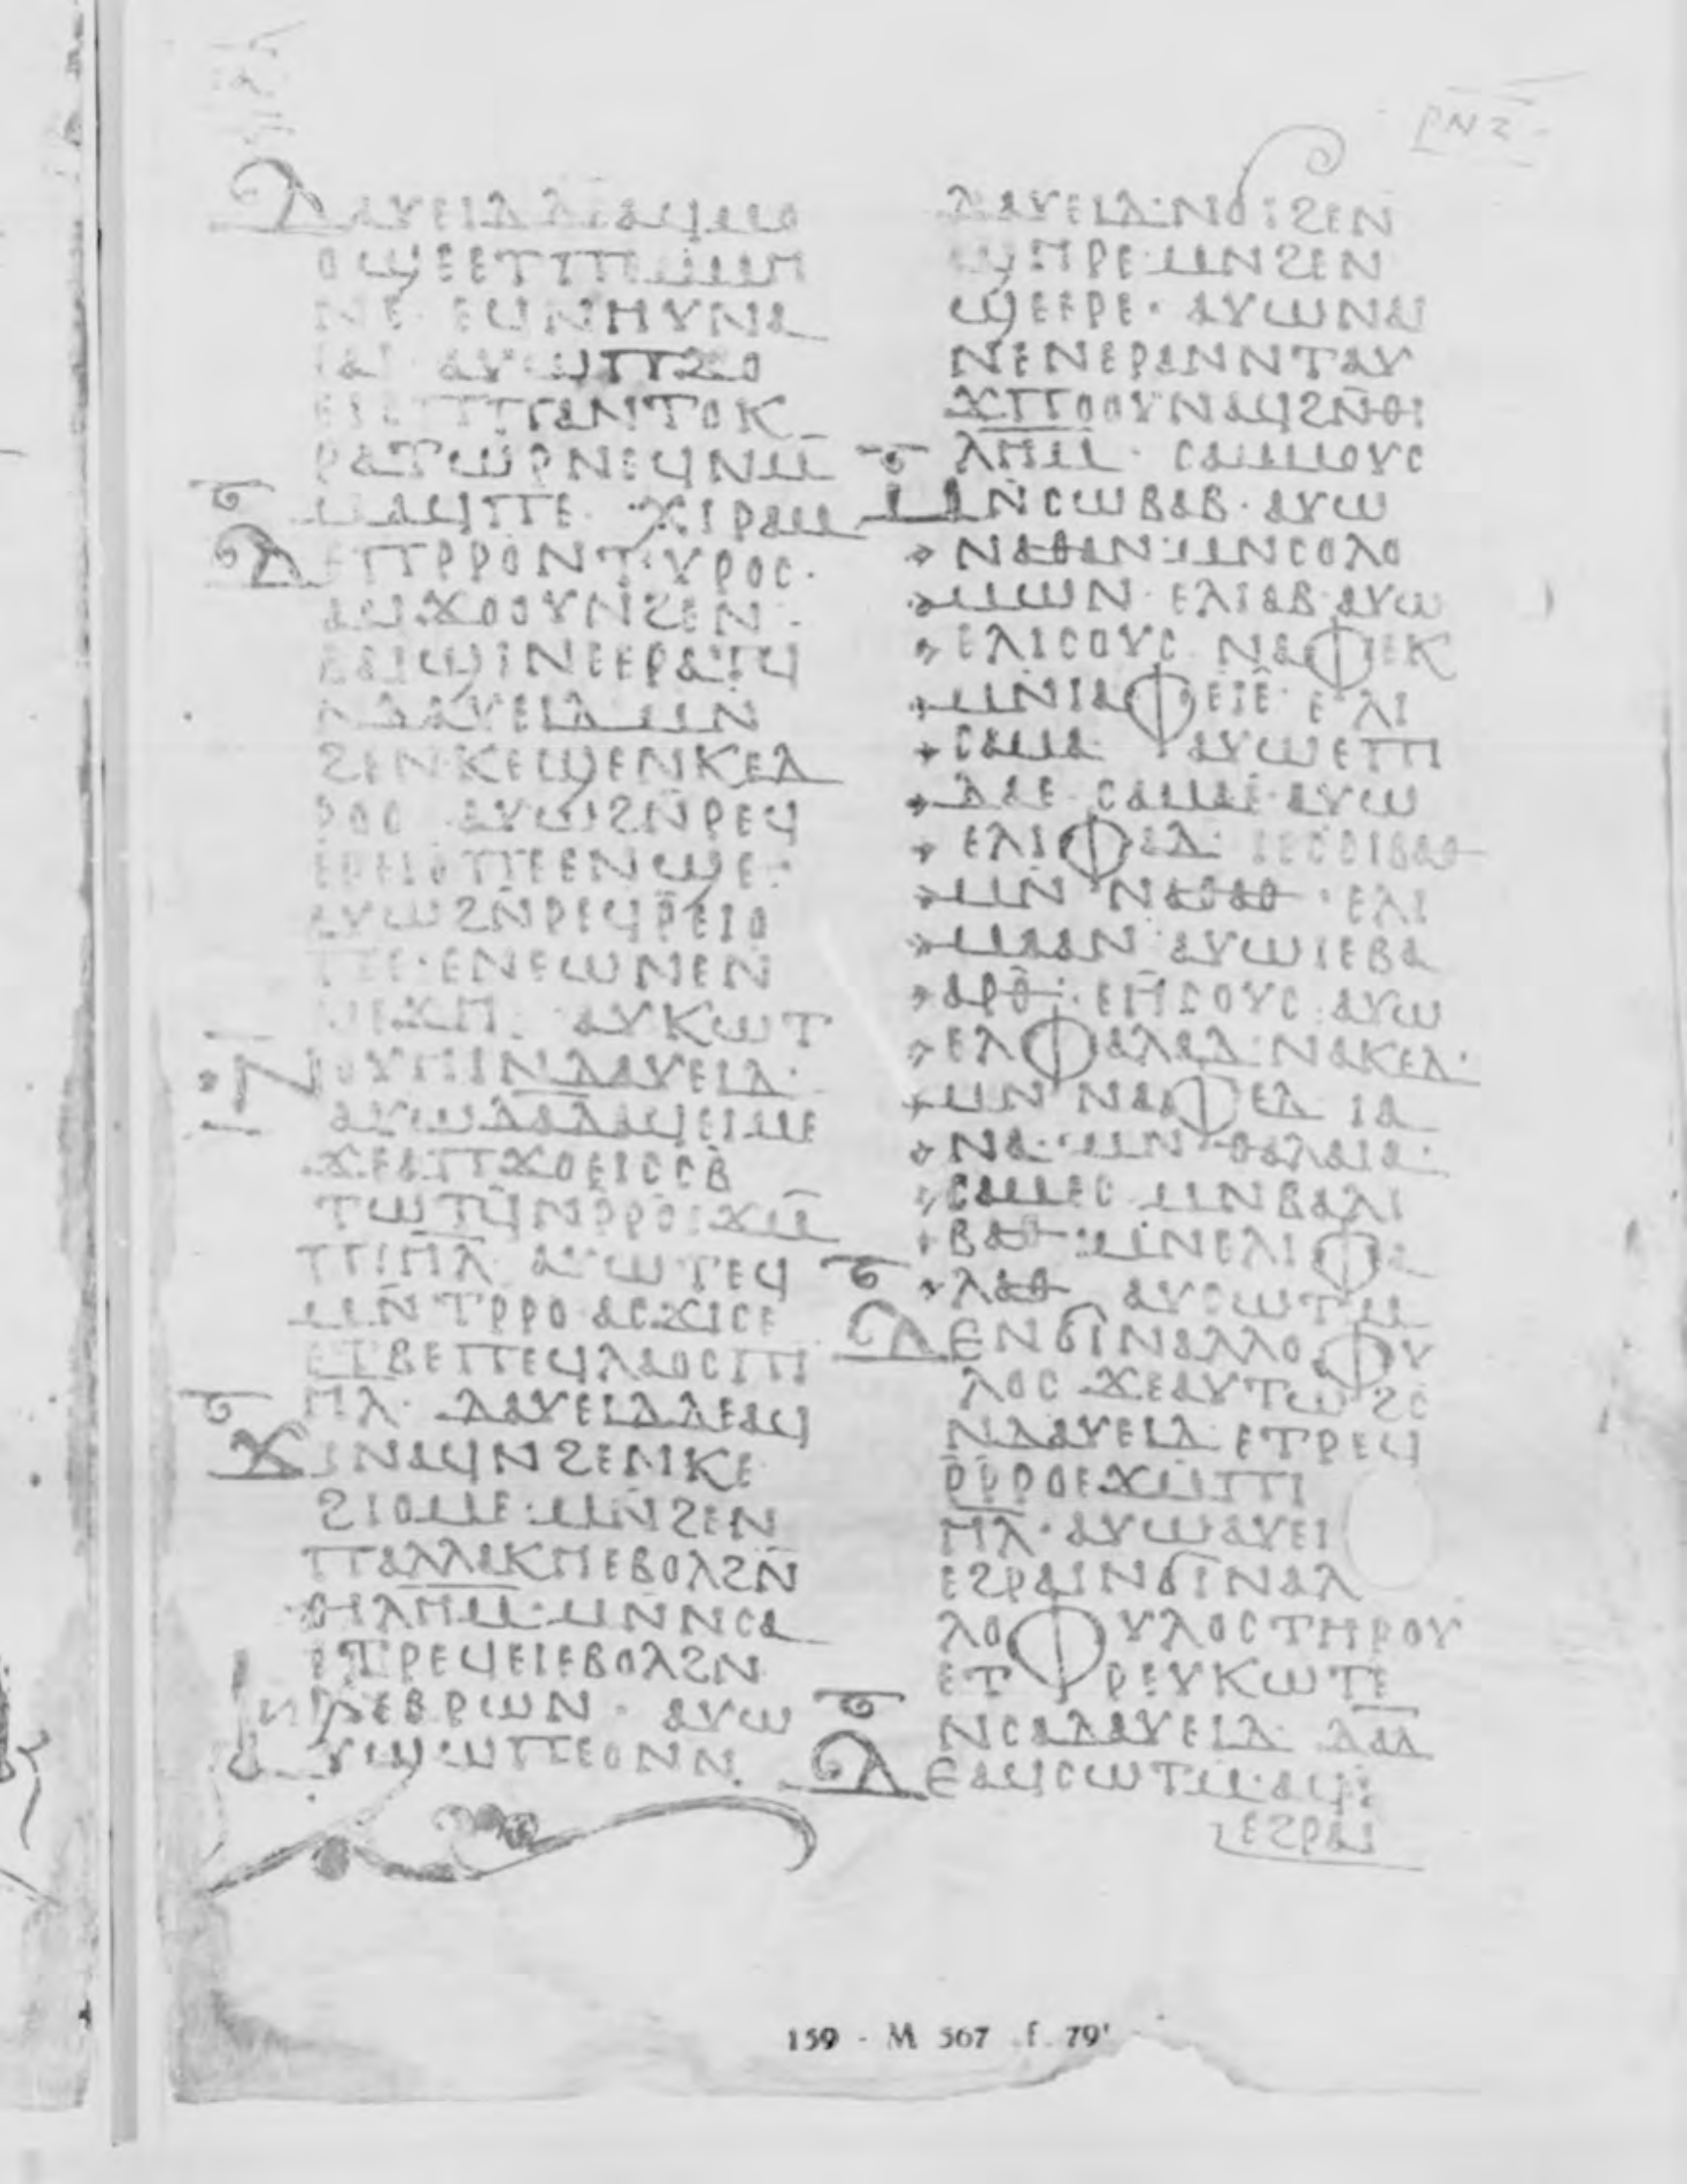 ⲣⲛⲍ
ⲇⲁⲩⲉⲓⲇ ⲇⲉ ⲁϥⲙⲟ
ⲟϣⲉ ⲉϥⲛⲏⲩ ⲛⲁ
ⲁⲩⲱ ⲡϫⲟ
ⲉⲓⲥ ⲡⲡⲁⲛⲧⲟⲕ
ⲣⲁⲧⲱⲣ ⲛⲉϥⲛⲙ̄
ⲙⲁϥⲡⲉ· ⲭⲓⲣⲁⲙ
ⲇⲉ ⲡⲣ̄ⲣⲟ ⲛⲧⲩⲣⲟⲥ·
ⲁϥϫⲟⲟⲩ ⲛ̄ϩⲉⲛ
ϥⲁⲓϣⲓⲛⲉ ⲉⲣⲁⲧϥ
ⲛⲇⲁⲩⲉⲓⲇ ⲙⲛ̄
ϩⲉⲛⲕⲉϣⲉⲛⲕⲉⲇ
ⲣⲟⲥ ⲁⲩⲱ ϩⲛ̄ⲣⲉϥ
ⲉⲣⲉⲓⲟⲡⲉ ⲉⲛϣⲉ·
ⲁⲩⲱ ϩⲛ̄ⲣⲉϥⲣ̄ⲉⲓⲟ
ⲡⲉ· ⲉⲛⲉⲱⲛⲉ ⲛ
ⲁⲩⲕⲱⲧ
ⲛⲟⲩⲏⲓ ⲛⲇⲁⲩⲉⲓⲇ·
ⲁⲩⲱ ⲁⲇⲁⲇ ⲁϥⲉⲓⲙⲉ
ϫⲉ ⲁⲡϫⲟⲉⲓⲥ ⲥⲃ̄
ⲧⲱⲧϥ̄ ⲛⲣ̄ⲣⲟ ⲉϫⲙ̄
ⲡⲓⲏⲗ ⲁⲩⲱ ⲧⲉϥ
ⲙⲛ̄ⲧⲣ̄ⲣⲟ ⲁⲥϫⲓⲥⲉ
ⲉⲧⲃⲉ ⲡⲉϥⲗⲁⲟⲥ ⲡⲓ
ⲏⲗ· ⲇⲁⲩⲉⲓⲇ ⲇⲉ ⲁϥ
ϫⲓ ⲛⲁϥ ⲛϩⲉⲛⲕⲉ
ϩⲓⲟⲙⲉ· ⲙⲛ̄ϩⲉⲛ
ⲡⲁⲗⲗⲁⲕⲏ ⲉⲃⲟⲗ ϩⲛ̄
ⲑⲓⲗⲏⲙ· ⲙⲛ̄ⲛⲥⲁ
ⲉⲧⲣⲉϥⲉⲓ ⲉⲃⲟⲗ ϩⲛ
ⲭⲉⲃⲣⲱⲛ· ⲁⲩⲱ
ⲁⲩϣⲱⲡⲉ ⲟⲛ ⲛ
ⲇⲁⲩⲉⲓⲇ· ⲛϭⲓ ϩⲉⲛ
ϣⲏⲣⲉ ⲙⲛϩⲉⲛ
ϣⲉⲉⲣⲉ· ⲁⲩⲱ ⲛⲁⲓ
ⲛⲉ ⲛⲉⲣⲁⲛ ⲛⲧⲁⲩ
ϫⲡⲟⲟⲩ ⲛⲁϥ ϩⲛ̄ⲑⲓ
ⲗⲏⲙ· ⲥⲁⲙⲙⲟⲩⲥ
ⲙⲛ̄ⲥⲱⲃⲁⲃ· ⲁⲩⲱ
ⲛⲁⲑⲁⲛ· ⲙⲛⲥⲟⲗⲟ
ⲙⲱⲛ· ⲉⲗⲓⲁⲃ ⲁⲩⲱ
ⲉⲗⲓⲥⲟⲩⲥ ⲛⲁⲫⲉⲕ
ⲙⲛⲓⲁⲫⲉⲓⲉ· ⲉⲗⲓ
ⲥⲁⲙⲁ ⲁⲩⲱ ⲉⲡⲓ
ⲇⲁⲉ· ⲥⲁⲙⲁⲉ· ⲁⲩⲱ
ⲉⲗⲓⲫⲁⲇ· ⲓⲉⲥⲥⲓⲃⲁⲑ
ⲙⲛ̄ ⲛⲁⲑⲁⲑ· ⲉⲗⲓ
ⲙⲁⲁⲛ ⲁⲩⲱ ⲓⲉⲃⲁ
ⲁⲣⲑ· ⲉⲏⲥⲟⲩⲥ ⲁⲩⲱ
ⲉⲗⲫⲁⲗⲁⲇ· ⲛⲁⲕⲉⲇ·
ⲙⲛ ⲛⲁⲫⲉⲇ ⲓⲁ
ⲛⲁ· ⲙⲛ ⲑⲁⲗⲁⲓⲁ·
ⲥⲁⲙⲉⲥ ⲙⲛ ⲃⲁⲗⲓ
ⲃⲁⲑ· ⲙⲛ ⲉⲗⲓⲫⲁ
ⲗⲁⲑ ⲁⲩⲥⲱⲧⲙ
ⲇⲉ ⲛϭⲓ ⲛⲁⲗⲗⲟⲫⲩ
ⲗⲟⲥ ϫⲉ ⲁⲩⲧⲱϩⲥ
ⲛⲇⲁⲩⲉⲓⲇ· ⲉⲧⲣⲉϥ
ⲣ̄ⲣ̄ⲣⲟ ⲉϫⲙ̄ⲡⲓ
ⲏⲗ· ⲁⲩⲱ ⲁⲩⲉⲓ
ⲉϩⲣⲁⲓ ⲛϭⲓ ⲛⲁⲗ
ⲗⲟⲫⲩⲗⲟⲥ ⲧⲏⲣⲟⲩ
ⲉⲧⲣⲉⲩⲕⲱⲧⲉ
ⲛⲥⲁ ⲇⲁⲩⲉⲓⲇ· ⲇⲁⲇ
ⲇⲉ ⲁϥⲥⲱⲧⲙ· ⲁϥⲓ
ⲉϩⲣⲁⲓ
159 - M 567 f. 79'